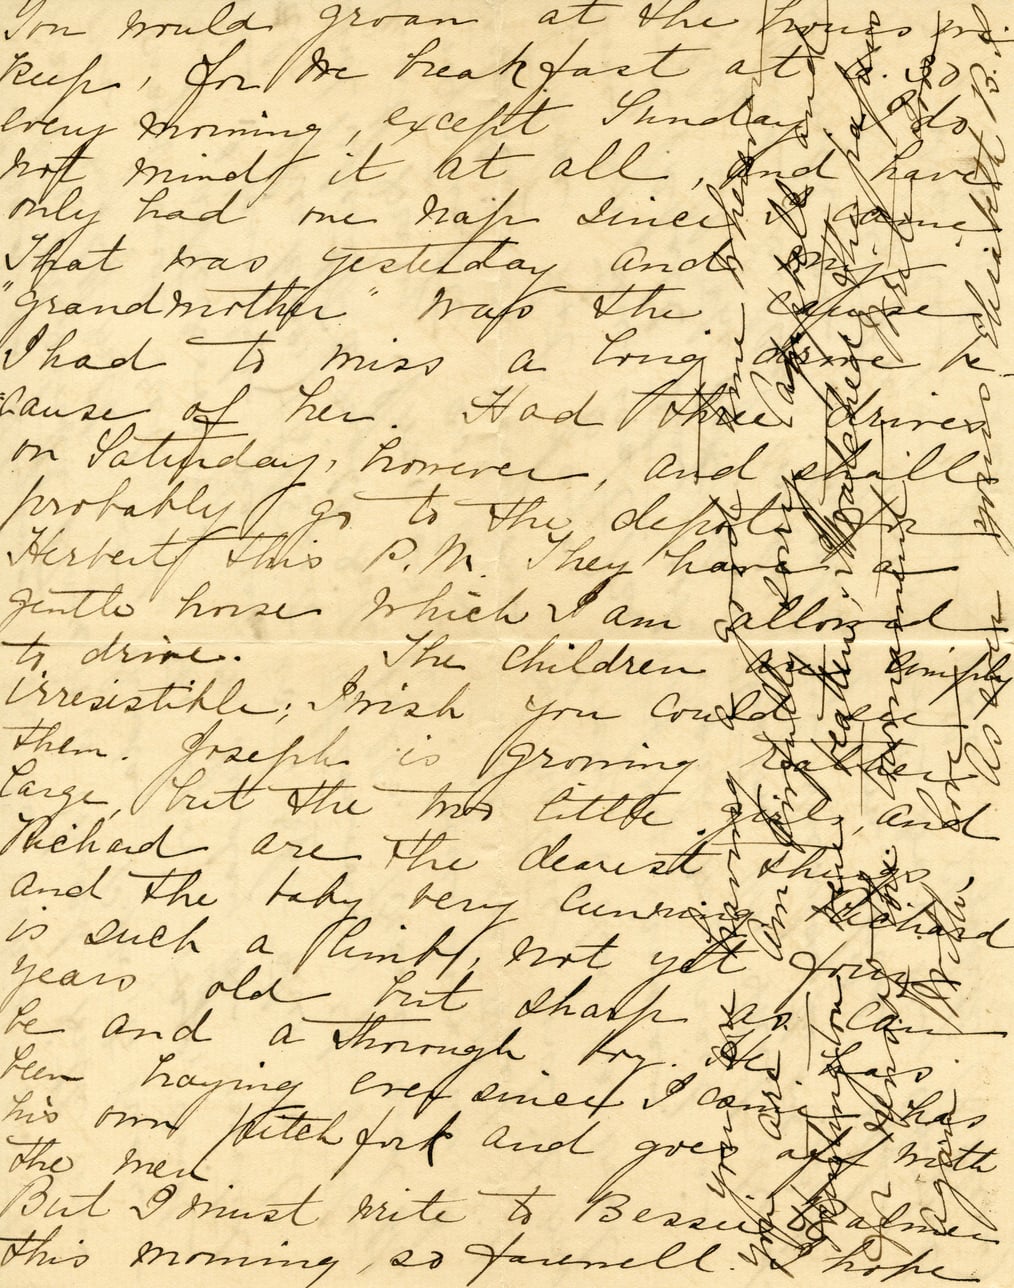 You would groan at the hours we
keep, for we breakfast at
every morning, except Sunday. I do
not mind it at all, and have
only had one nap since I came.
That was yesterday and my
"grandmother" was the cause
I had to miss a long drive be-
cause of her. Had three drives
on Saturday, however, and shall
probably go to the depot for
Herbert this P.M. They have a
gentle horse which I am allowed
to drive. The children are simply
irresistible; I wish you could see
them. Joseph is growing rather
large, but the two little girls, and
Richard are the dearest things
and the baby very cunning. Richard
is such a limb, not yet four
years old but sharp as can
be and a thorough boy. He has
been haying ever since I came, has
his own pitchfork and goes off with
the men
But I must write to Bessie Palmer
this morning, so farewell. I hope
you are having a good time where
you are. Am dreadfully sorry
again. With love
As ever
yours Elizabeth B.